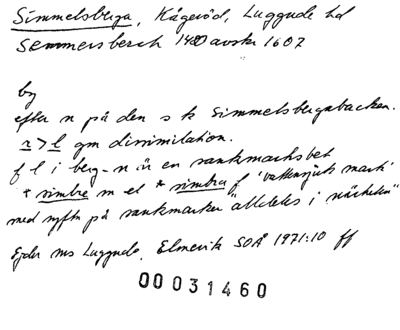 Simmelsberga, Kågeröd, Luggude hd
Semmersberch 1480 avskr 1602
by
efter n på den s k Simmelsbergabacken.
r > l gm dissimilation.
f l i berg-n är en sankmarksbet
*simbre m el *simbra f 'vattensjuk mark'
med syftn på sankmarken "alldeles i närheten"
Ejder ms Luggude, Elmevik SOÅ 1971:10 ff
00031460